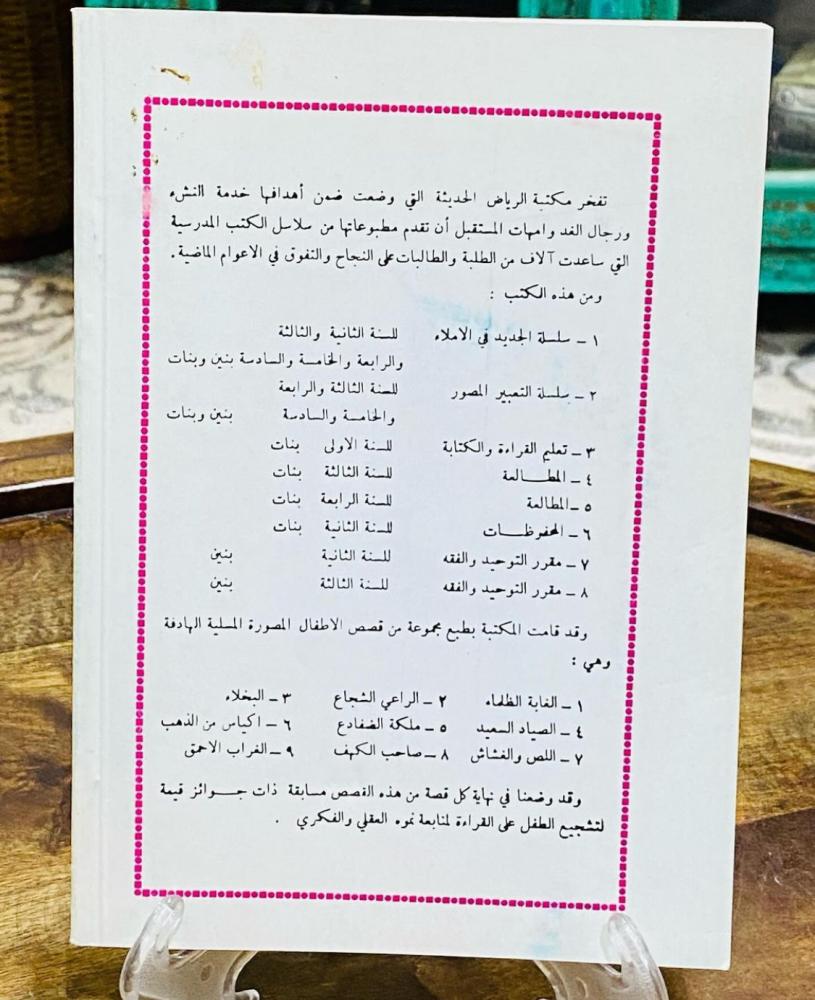 تفخر مكتبة الرياض الحديثة التي وضعت ضمن أهدافها خدمة النشء
ورجال الغد وامهات المستقبل أن تقدم مطبوعاتها من سلاسل الكتب المدرسية
التي ساعدت آلاف من الطلبة والطالبات على النجاح والتفوق في الاعوام الماضية.
ومن هذه الكتب :
١ ـ سلسلة الجديد في الاملاء للسنة الثانية والثالثة
والرابعة والخامسة والسادسة بنين وبنات
٢ ـ سلسلة التعبير المصور للسنة الثالثة والرابعة
والخامسة والسادسة بنين وبنات
٣ ـ تعليم القراءة والكتابة للسنة الاولى بنات
٤ ـ المطـــالعة للسنة الثالثة بنات
٥ ـ المطالعة للسنة الرابعة بنات
٦ ـ المحفوظـــات للسنة الثانية بنات
٧ ـ مقرر التوحيد والفقه للسنة الثانية بنين
٨ ـ مقرر التوحيد والفقه للسنة الثالثة بنين
وقد قامت المكتبة بطبع مجموعة من قصص الاطفال المصورة المسلية الهادفة
وهي :
١ ـ الغابة الظلماء ٢ ـ الراعي الشجاع ٣ ـ البخلاء
٤ ـ الصياد السعيد ٥ ـ ملكة الضفادع ٦ ـ اكياس من الذهب
٧ ـ اللص والغشاش ٨ ـ صاحب الكهف ٩ ـ الغراب الاحمق
وقد وضعنا في نهاية كل قصة من هذه القصص مسابقة ذات جـــوائز قيمة
لتشجيع الطفل على القراءة لمتابعة نموه العقلي والفكري .